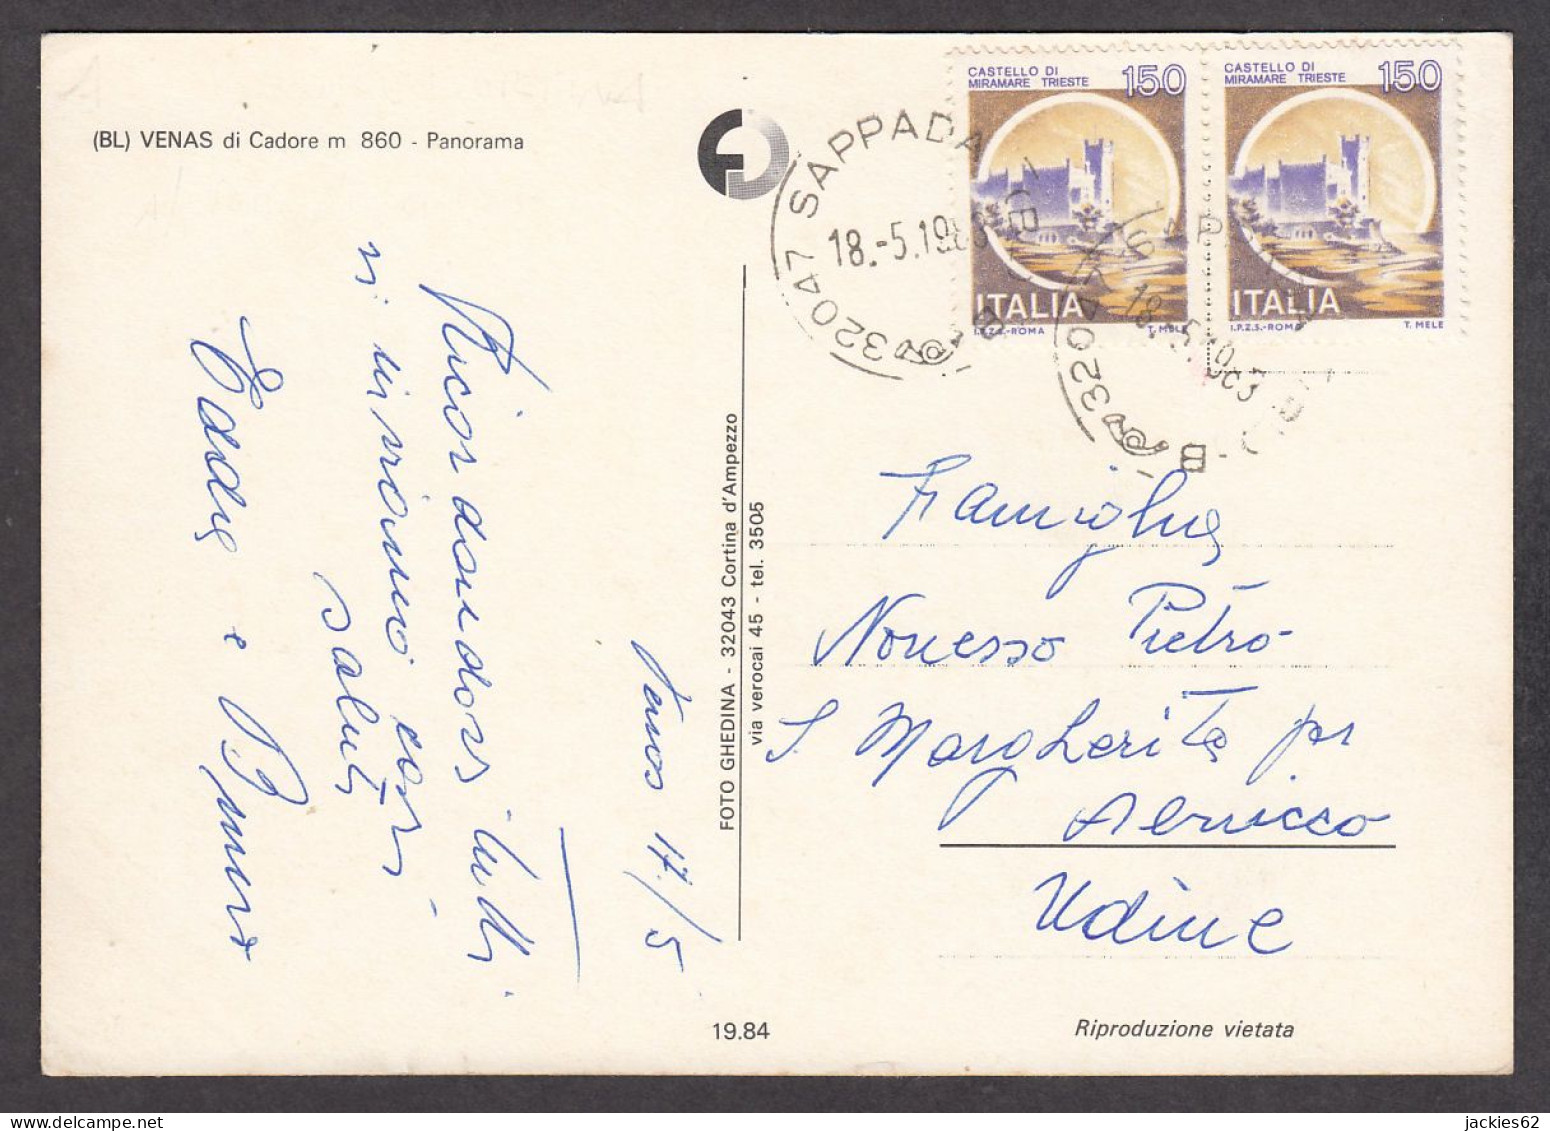 (BL) VENAS di Cadore m 860 - Panorama
CASTELLO DI
MIRAMARE TRIESTE
150
ITALIA
I.P.Z.S.-ROMA T. MELE
CASTELLO DI
MIRAMARE TRIESTE
150
ITALIA
I.P.Z.S.-ROMA T. MELE
32047 SAPPADA (B
18.-5.19
32047
18.-5.
Venas 17/5
Ricordandovi tutti
vi inviamo cari
saluti
e Bruno
FOTO GHEDINA - 32043 Cortina d'Ampezzo
via verocai 45 - tel. 3505
Famiglia
Pietro
S. Margherita
Udine
19.84
Riproduzione vietata
jackies62